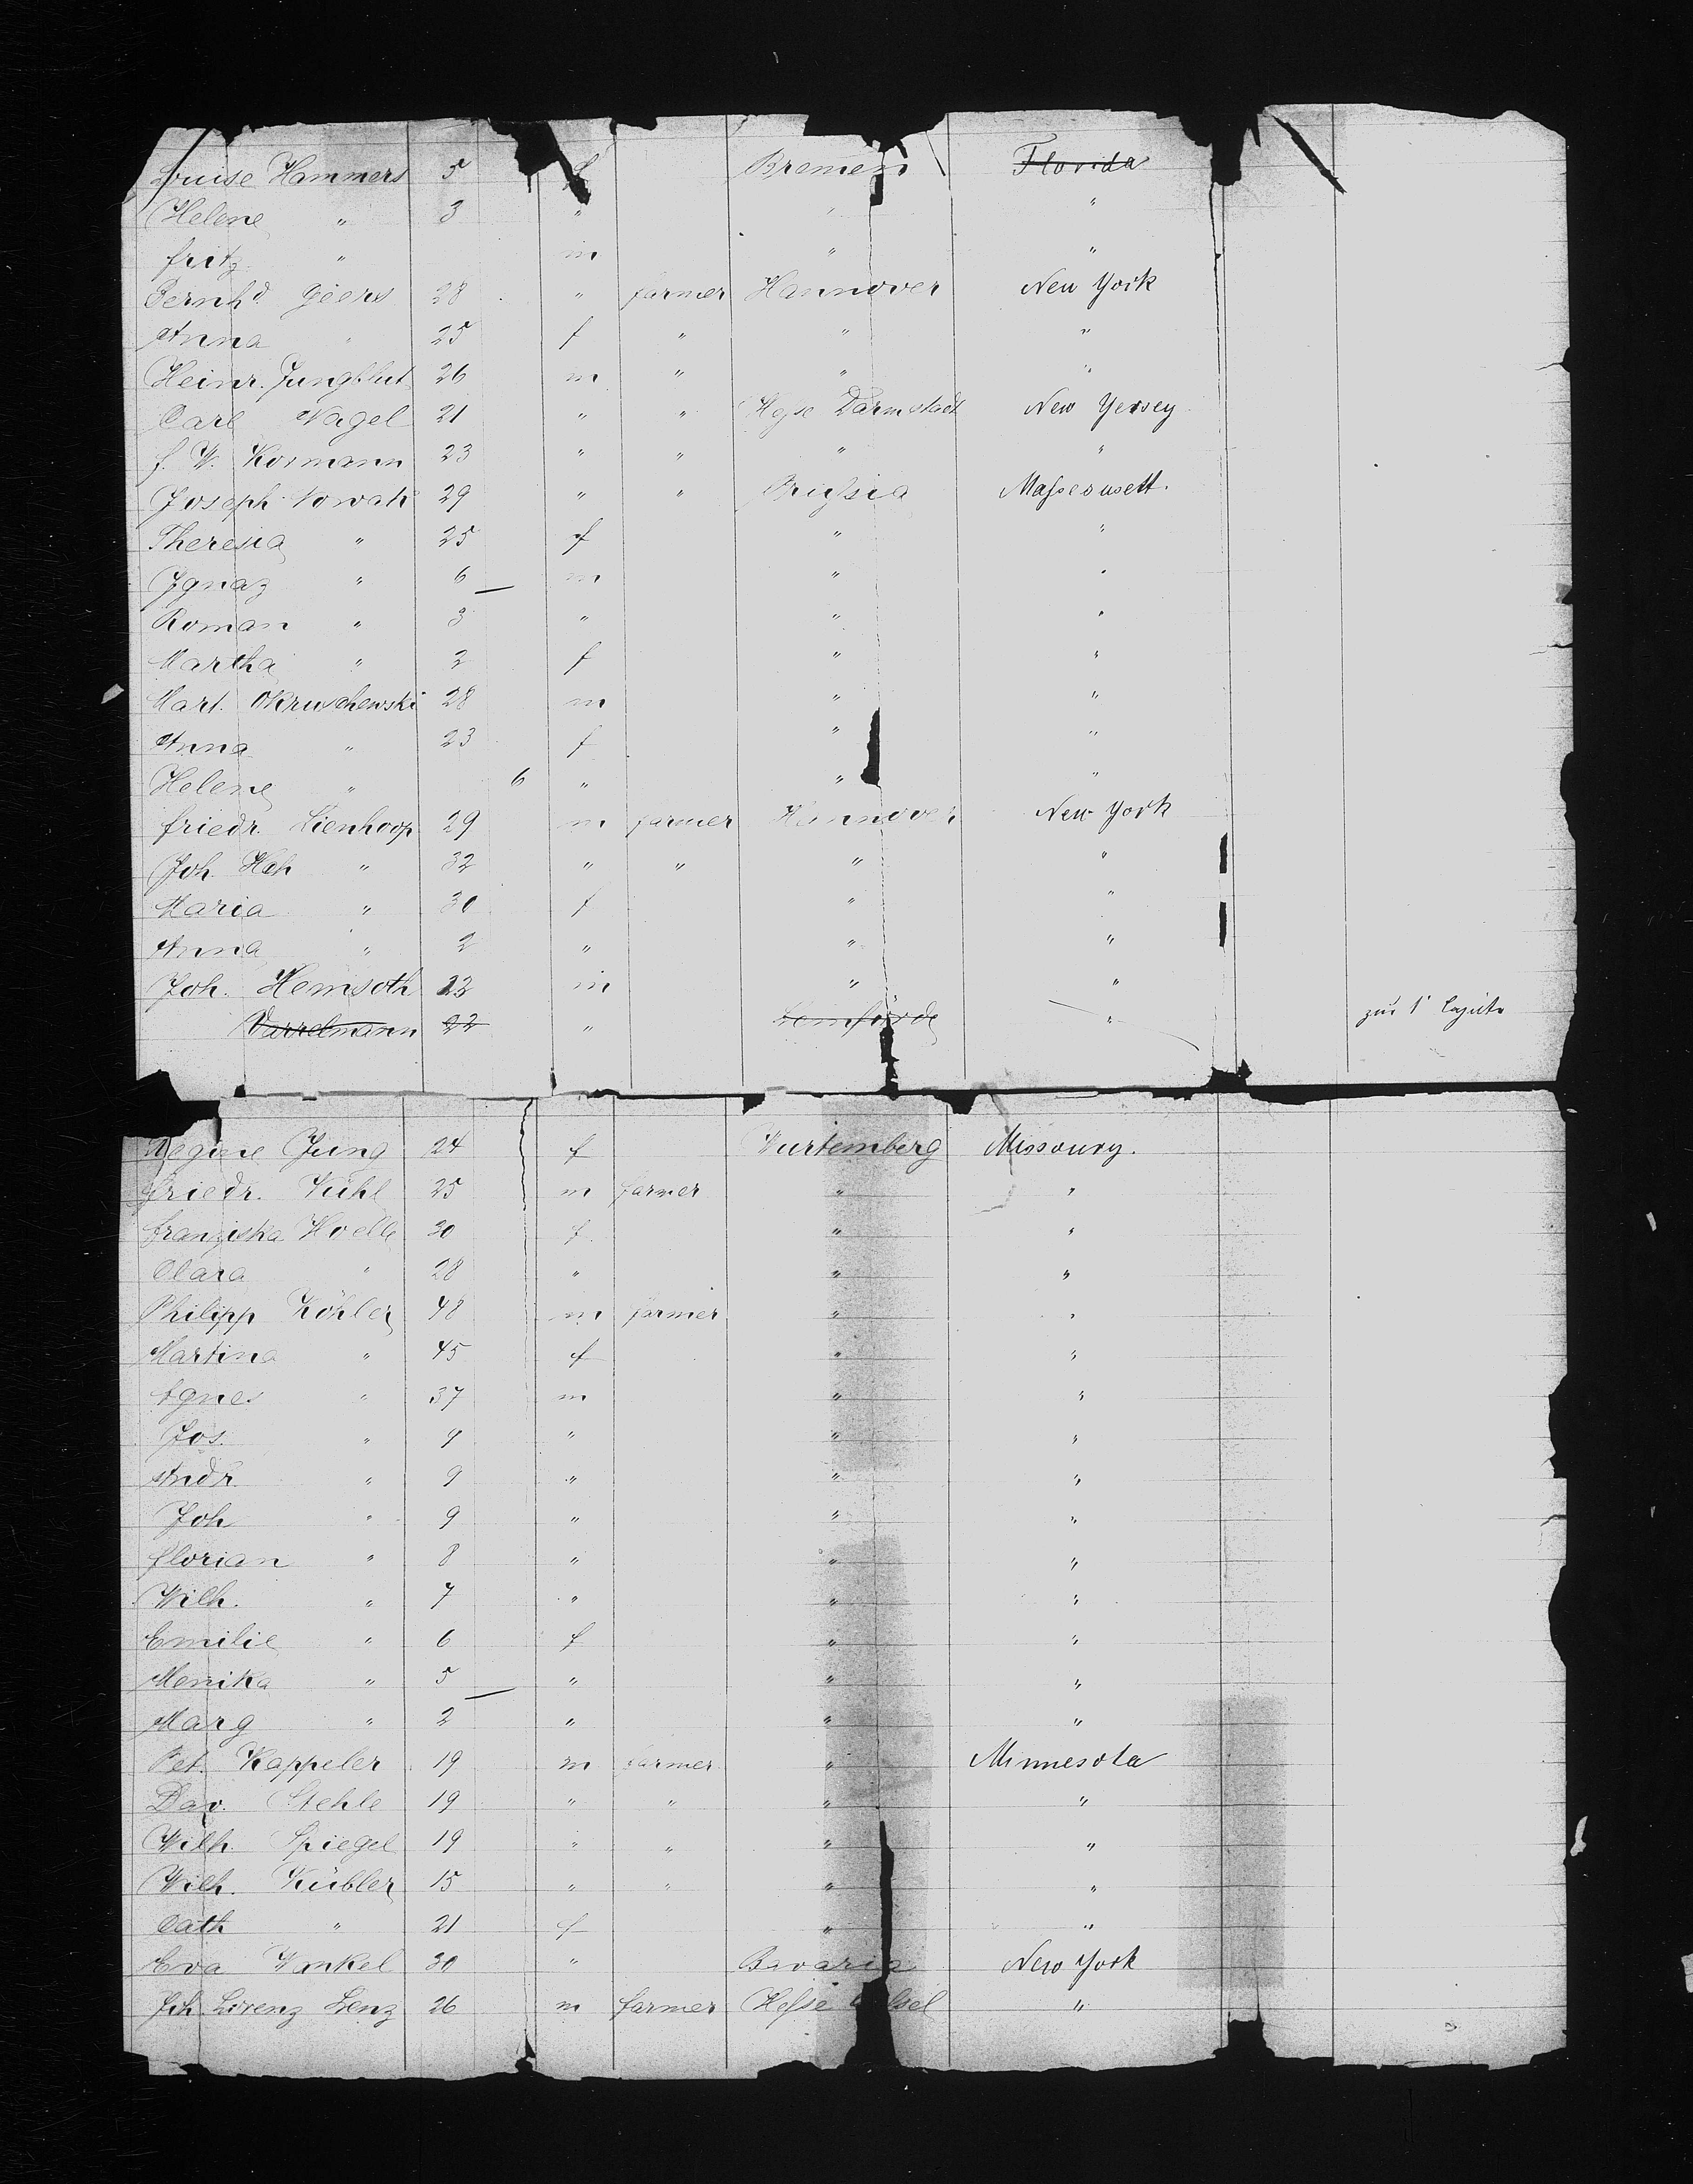 Louise Hammers 5 f Bremen Florida
Helene " 3 " " "
Fritz " m " "
Bernhd. Geers 28 " farmer Hannover New York
Anna " 25 f " " "
Heinr. Jungblut 26 m " " "
Carl Nagel 21 " " Hesse Darmstadt New Yersey
F. W. Kormann 23 " " " "
Joseph Nowak 29 " " Prussia Massesusett.
Theresia " 25 f " "
Ignaz " 6 m " "
Roman " 3 " " "
Martha " 2 f " "
Mart. Okruschewski 28 m " "
Anna " 23 f " "
Helene " 6 " " "
Friedr. Lienhoop 29 m farmer Hannover New York
Joh. Hch " 32 " " " "
Maria " 30 f " "
Anna " 2 " " "
Joh. Hemsoth 22 m " "
Varrelmann 22 " Lemförde " zur 1 Cajüte
Regine Jung 24 f Wurtemberg Missoury.
Friedr. Kuhl 25 m farmer " "
Franziska Hoelle 30 f " "
Clara " 28 " " "
Philipp Köhler 48 m farmer " "
Martina " 45 f " "
Agnes " 37 m " "
Jos. " 9 " " "
Andr. " 9 " " "
Joh " 9 " " "
Florian " 8 " " "
Wilh. " 7 " " "
Emilie " 6 f " "
Monika " 5 " " "
Marg " 2 " " "
Pet. Kappeler 19 m farmer " Minnesota
Dav. Stehle 19 " " " "
Wilh. Spiegel 19 " " " "
Wilh. Kübler 15 " " " "
Cath " 21 f " "
Eva Wankel 30 " Bavaria New York
Joh Lorenz Lenz 26 m farmer Hesse Cassel "